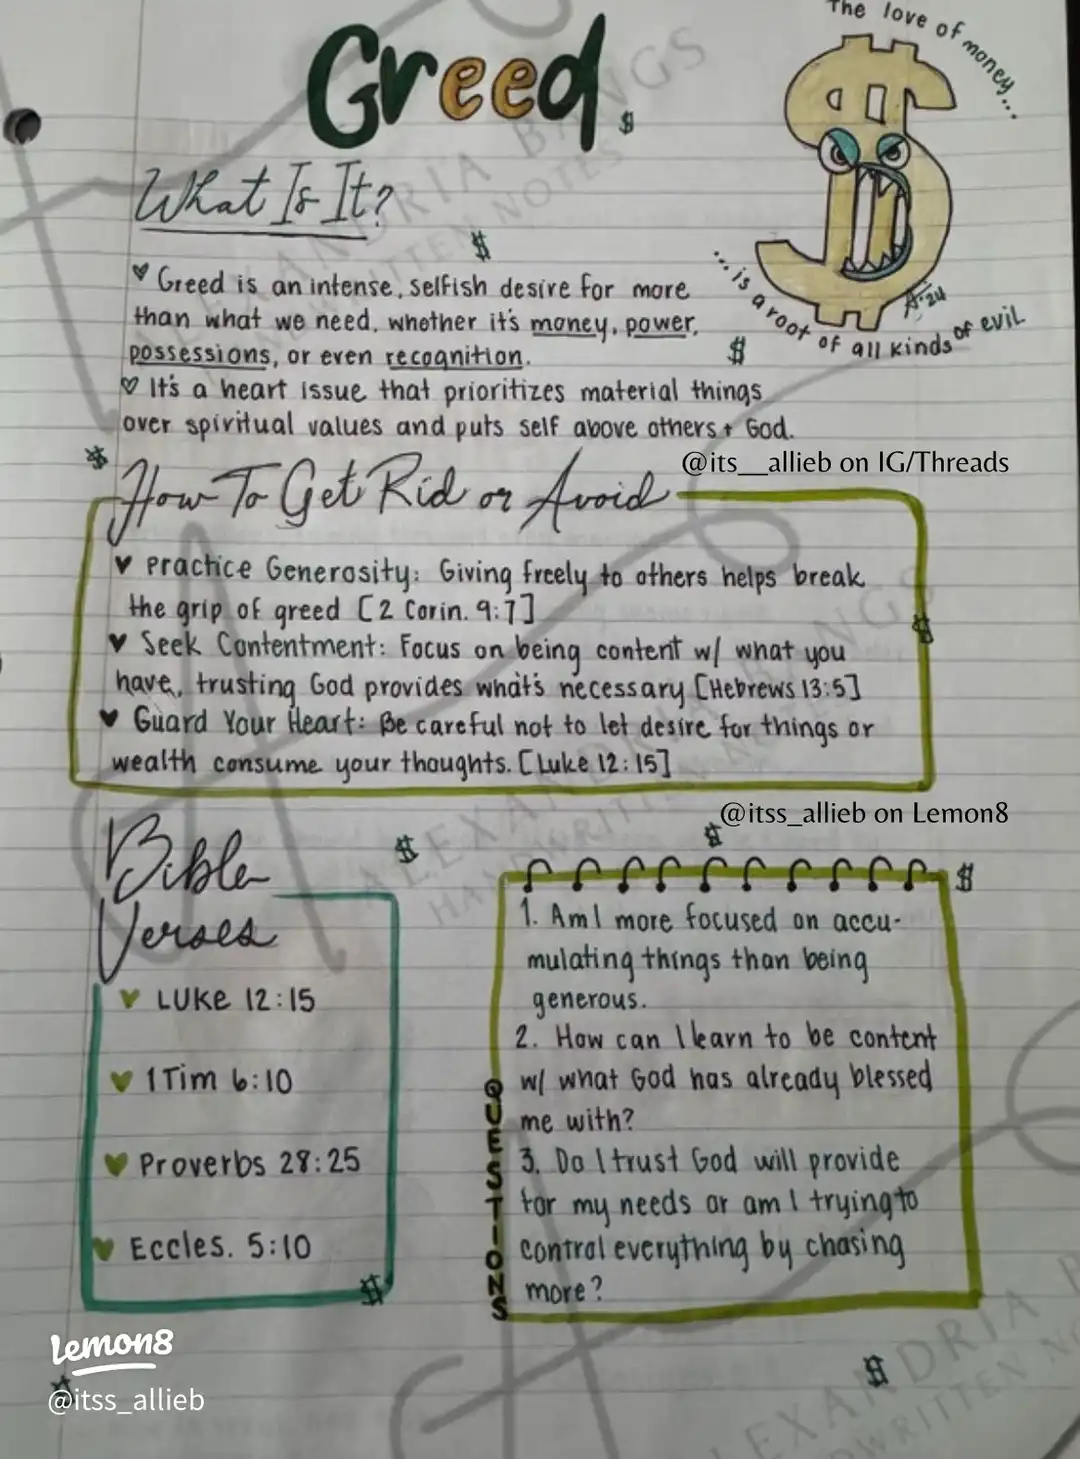 Greed
The love of money...
... is a root of all kinds of evil
A '24
What Is It?
Greed is an intense, selfish desire for more
than what we need, whether it's money, power,
possessions, or even recognition.
It's a heart issue that prioritizes material things
over spiritual values and puts self above others + God.
@its__allieb on IG/Threads
How To Get Rid or Avoid
Practice Generosity: Giving freely to others helps break
the grip of greed [2 Corin. 9:7]
Seek Contentment: Focus on being content w/ what you
have, trusting God provides what's necessary [Hebrews 13:5]
Guard Your Heart: Be careful not to let desire for things or
wealth consume your thoughts. [Luke 12:15]
@itss_allieb on Lemon8
Bible
Verses
LUKE 12:15
1 Tim 6:10
Proverbs 28:25
Eccles. 5:10
QUESTIONS
1. Am I more focused on accu-
mulating things than being
generous.
2. How can I learn to be content
w/ what God has already blessed
me with?
3. Do I trust God will provide
for my needs or am I trying to
control everything by chasing
more?
Lemon8
@itss_allieb
ALEXANDRIA BANGS
HANDWRITTEN NOTES